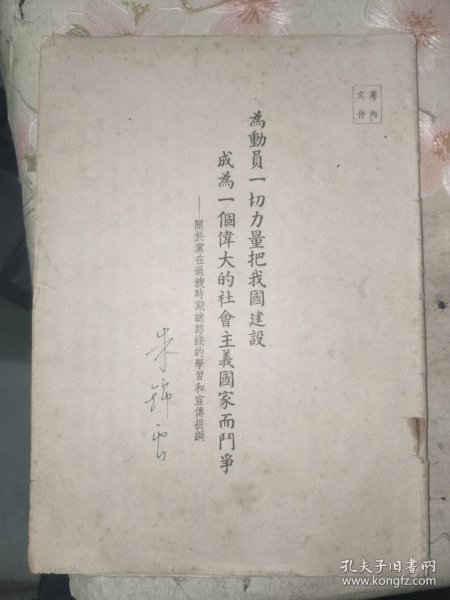 黨內
文件
為動員一切力量把我國建設
成為一個偉大的社會主義國家而鬥爭
——關於黨在過渡時期總路綫的學習和宣傳提綱
朱錦雲
孔夫子旧书网
www.kongfz.com